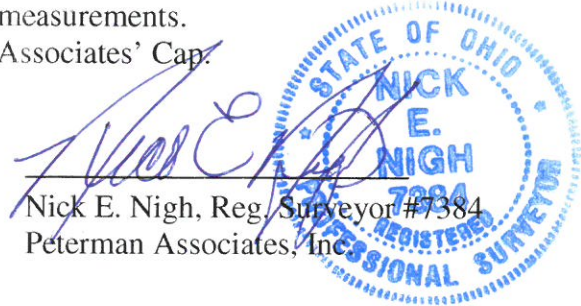 measurements.
Associates' Cap.
STATE OF OHIO
NICK
E.
NIGH
7384
REGISTERED
PROFESSIONAL SURVEYOR
Nick E. Nigh, Reg. Surveyor #7384
Peterman Associates, Inc.